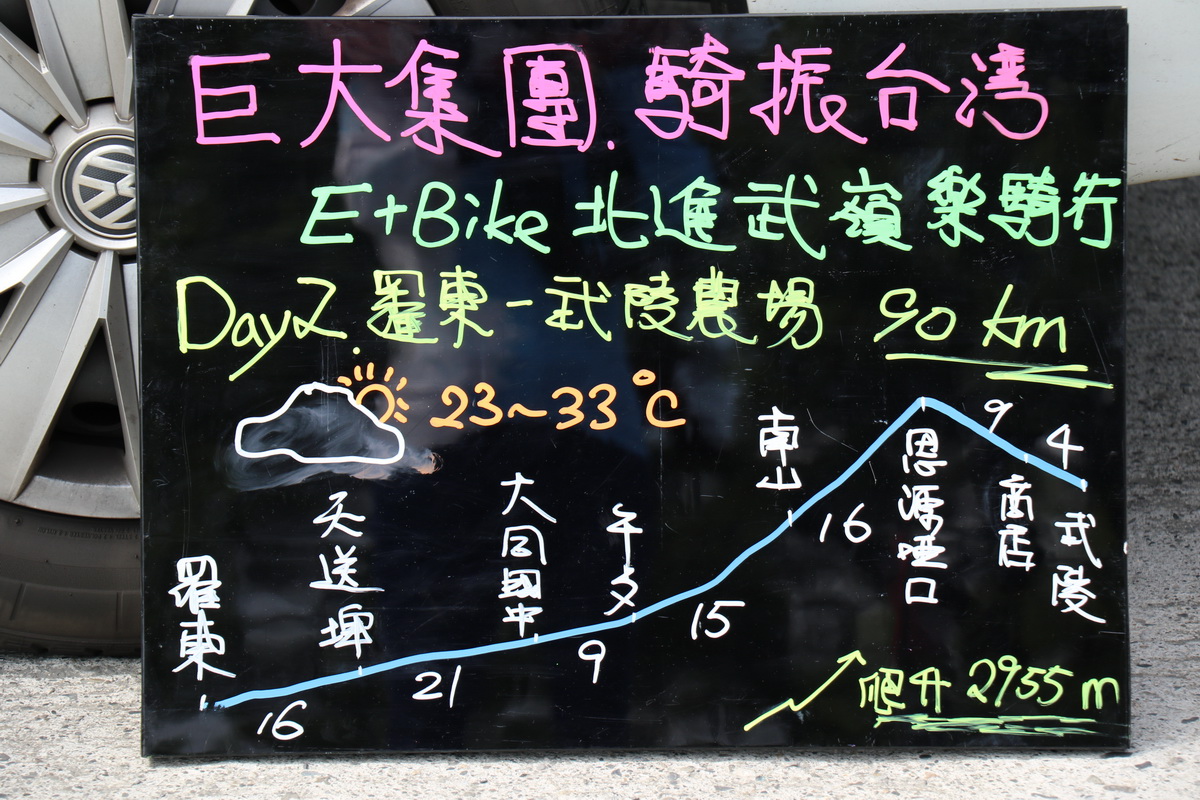 巨大集團.騎振台湾
E+Bike 北進武嶺樂騎行
Day2.羅東-武陵農場 90 km
23~33℃
羅東
16
天送埤
21
大同國中
9
午夕
15
南山
16
思源埡口
9
商店
4
武陵
爬升 2955 m